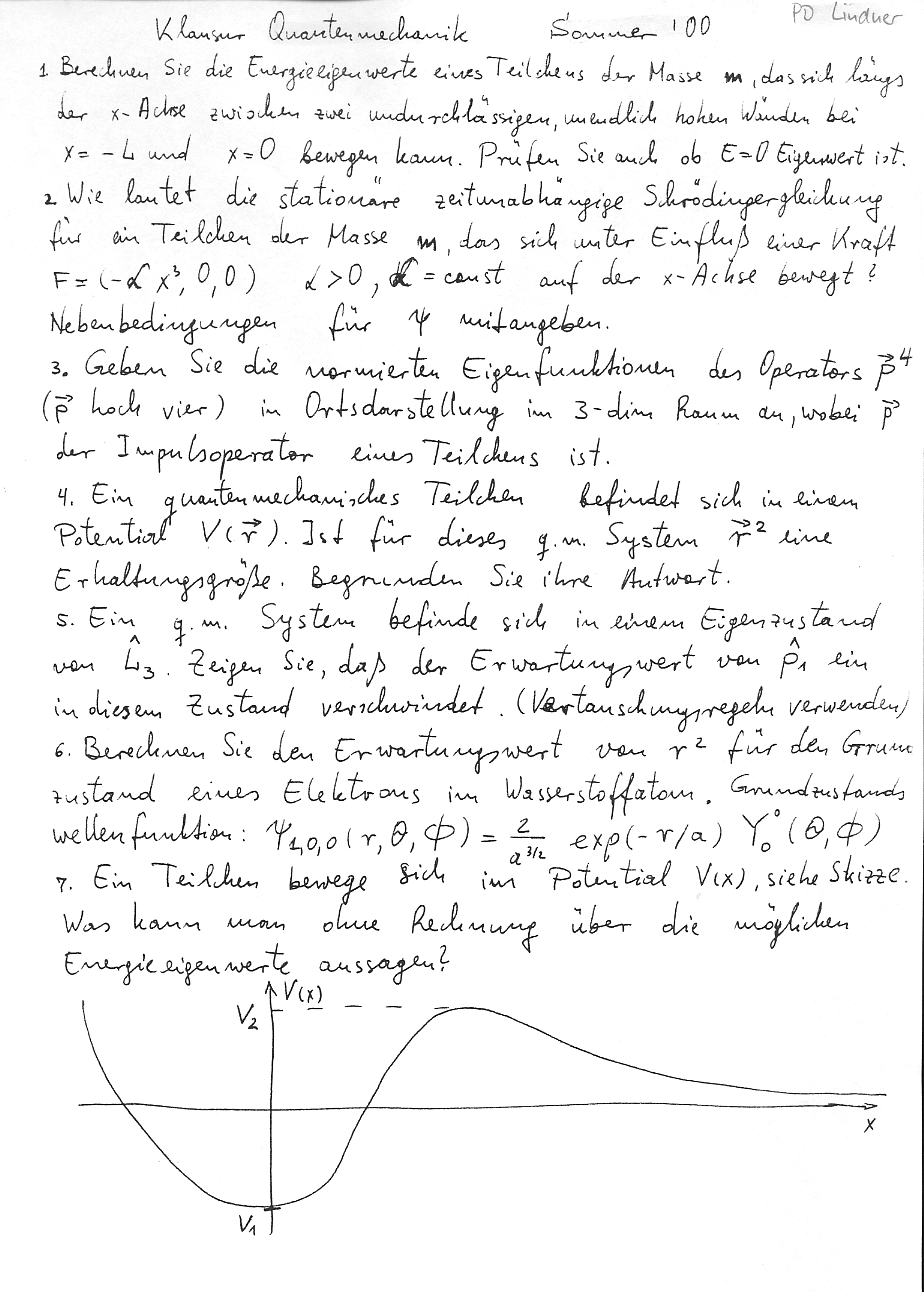 PD Lindner
Klausur Quantenmechanik Sommer '00
1. Berechnen Sie die Energieeigenwerte eines Teilchens der Masse m, das sich längs
der x-Achse zwischen zwei undurchlässigen, unendlich hohen Wänden bei
x = -L und x=0 bewegen kann. Prüfen Sie auch ob E=0 Eigenwert ist.
2. Wie lautet die stationäre zeitunabhängige Schrödingergleichung
für ein Teilchen der Masse m, das sich unter Einfluß einer Kraft
F = (-α x³, 0, 0) α > 0, α = const auf der x-Achse bewegt?
Nebenbedingungen für ψ mitangeben.
3. Geben Sie die normierten Eigenfunktionen des Operators p⃗⁴
(p⃗ hoch vier) in Ortsdarstellung im 3-dim Raum an, wobei p⃗
der Impulsoperator eines Teilchens ist.
4. Ein quantenmechanisches Teilchen befindet sich in einem
Potential V(r⃗). Ist für dieses q.m. System r⃗² eine
Erhaltungsgröße. Begründen Sie ihre Antwort.
5. Ein q.m. System befinde sich in einem Eigenzustand
von L̂₃. Zeigen Sie, daß der Erwartungswert von p̂₁ ein
in diesem Zustand verschwindet. (Vertauschungsregeln verwenden)
6. Berechnen Sie den Erwartungswert von r² für den Grun
zustand eines Elektrons im Wasserstoffatom. Grundzustands
wellenfunktion: Ψ₁,₀,₀(r, θ, ϕ) = 2/a^{3/2} exp(-r/a) Y₀⁰(θ, ϕ)
7. Ein Teilchen bewege sich im Potential V(x), siehe Skizze.
Was kann man ohne Rechnung über die möglichen
Energieeigenwerte aussagen?
V(x)
V₂
x
V₁